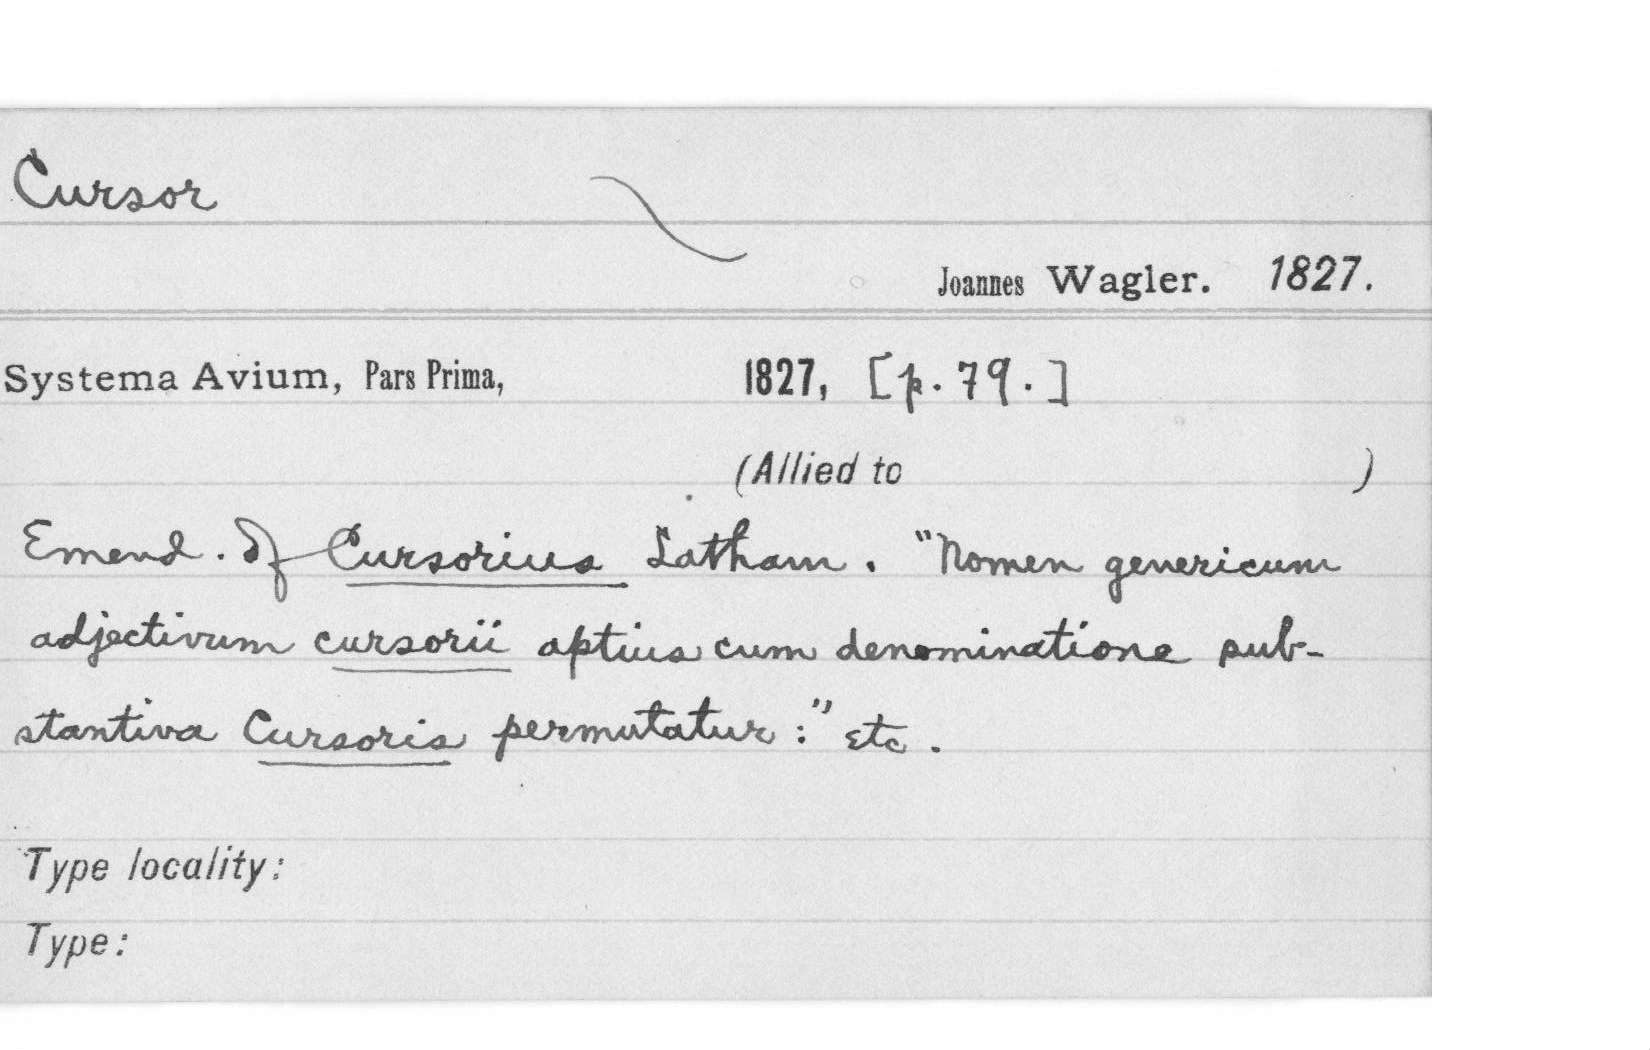 Cursor
Joannes Wagler. 1827.
Systema Avium, Pars Prima, 1827, [p. 79.]
(Allied to )
Emend. of Cursorius Latham. "Nomen genericum
adjectivum cursorii aptius cum denominatione sub-
stantiva Cursoris permutatur:" etc.
Type locality:
Type: